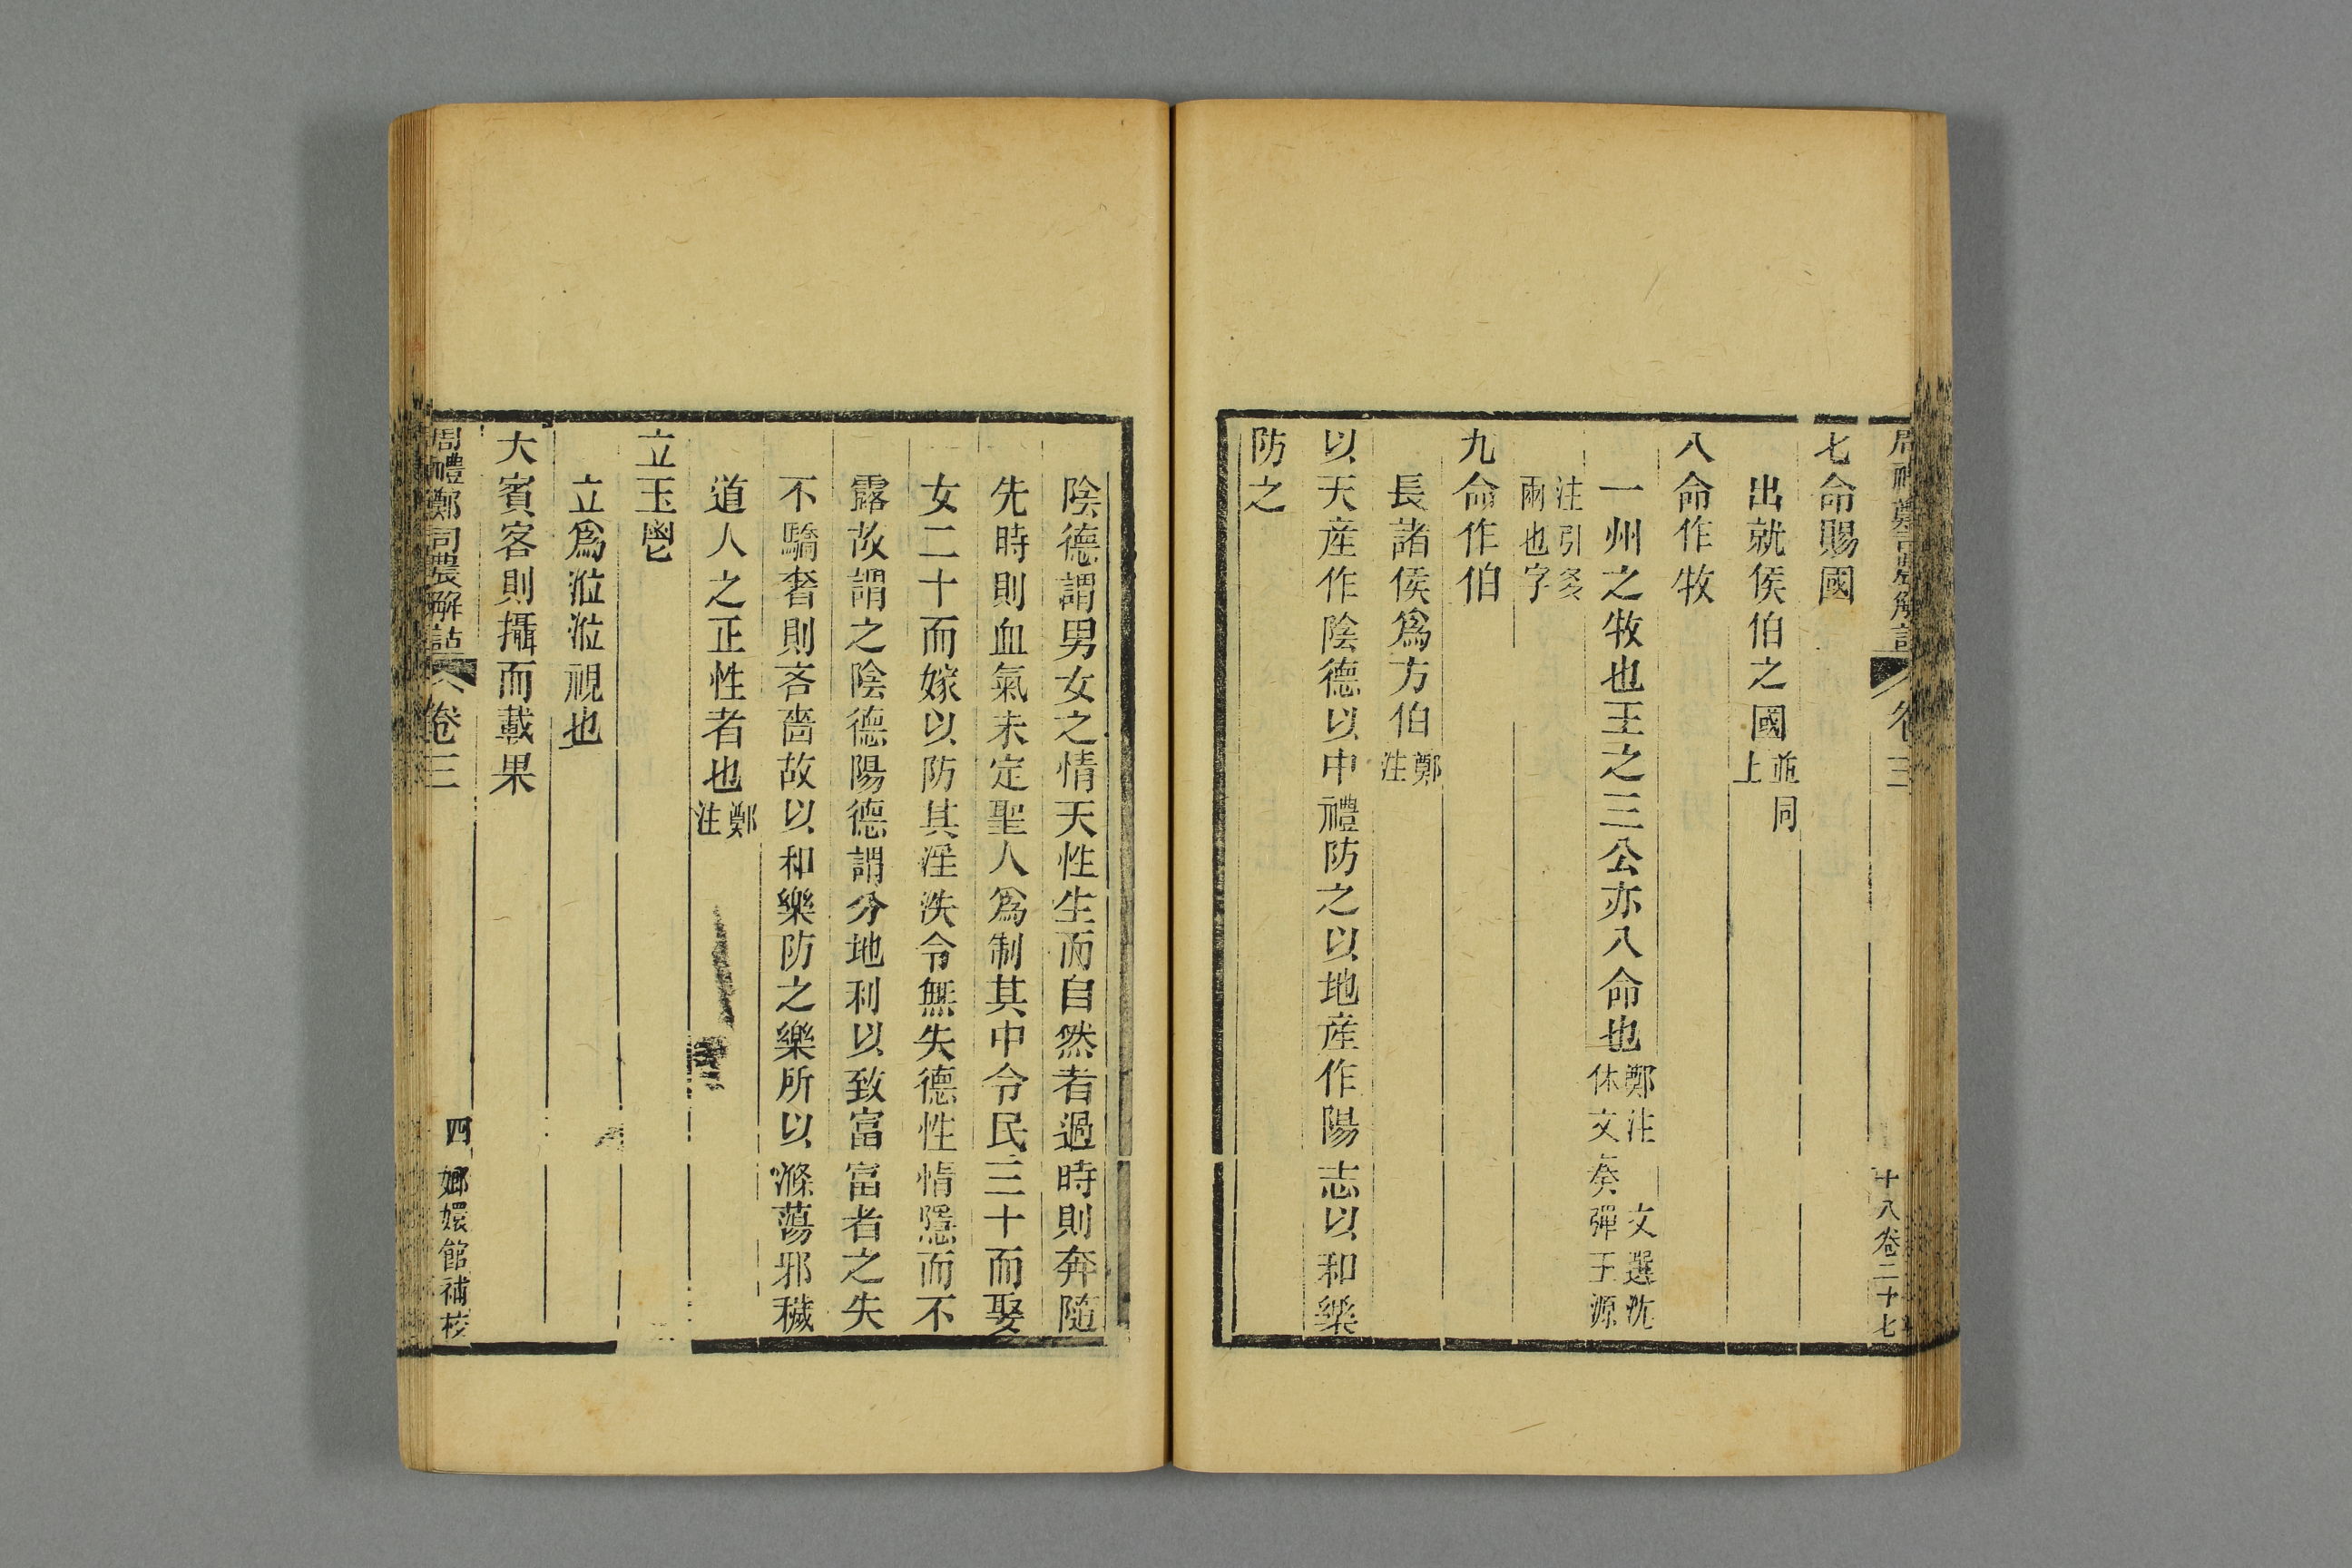 周禮鄭司農解詁 卷三 十八卷二十七
七命賜國
出就侯伯之國並同上
八命作牧
一州之牧也王之三公亦八命也鄭注 文選沈休文奏彈王源
注引多兩也字
九命作伯
長諸侯爲方伯鄭注
以天產作陰德以中禮防之以地產作陽志以和樂
防之
陰德謂男女之情天性生而自然者過時則奔隨
先時則血氣未定聖人爲制其中令民三十而娶
女二十而嫁以防其淫泆令無失德性情隱而不
露故謂之陰德陽德謂分地利以致富富者之失
不驕奢則吝嗇故以和樂防之樂所以滌蕩邪穢
道人之正性者也鄭注
立玉鬯
立爲涖涖視也
大賓客則攝而載果
周禮鄭司農解詁 卷三 四 嫏嬛館補校